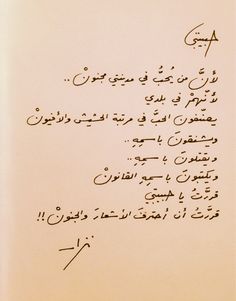 حبيبتي
لأنَّ من يُحبُّ في مدينتي مجنونْ ..
لأنّهمْ في بلدي
يصنّفونَ الحبَّ في مرتبةِ الحشيشِ والأفيونْ
ويشنقونَ باسمهِ ..
ويقتلونَ باسمهِ ..
ويكتبونَ باسمهِ القانونْ
قررتُ يا حبيبتي
قررَّتُ أن أحترفَ الأشعارَ والجنونْ !!
نزار